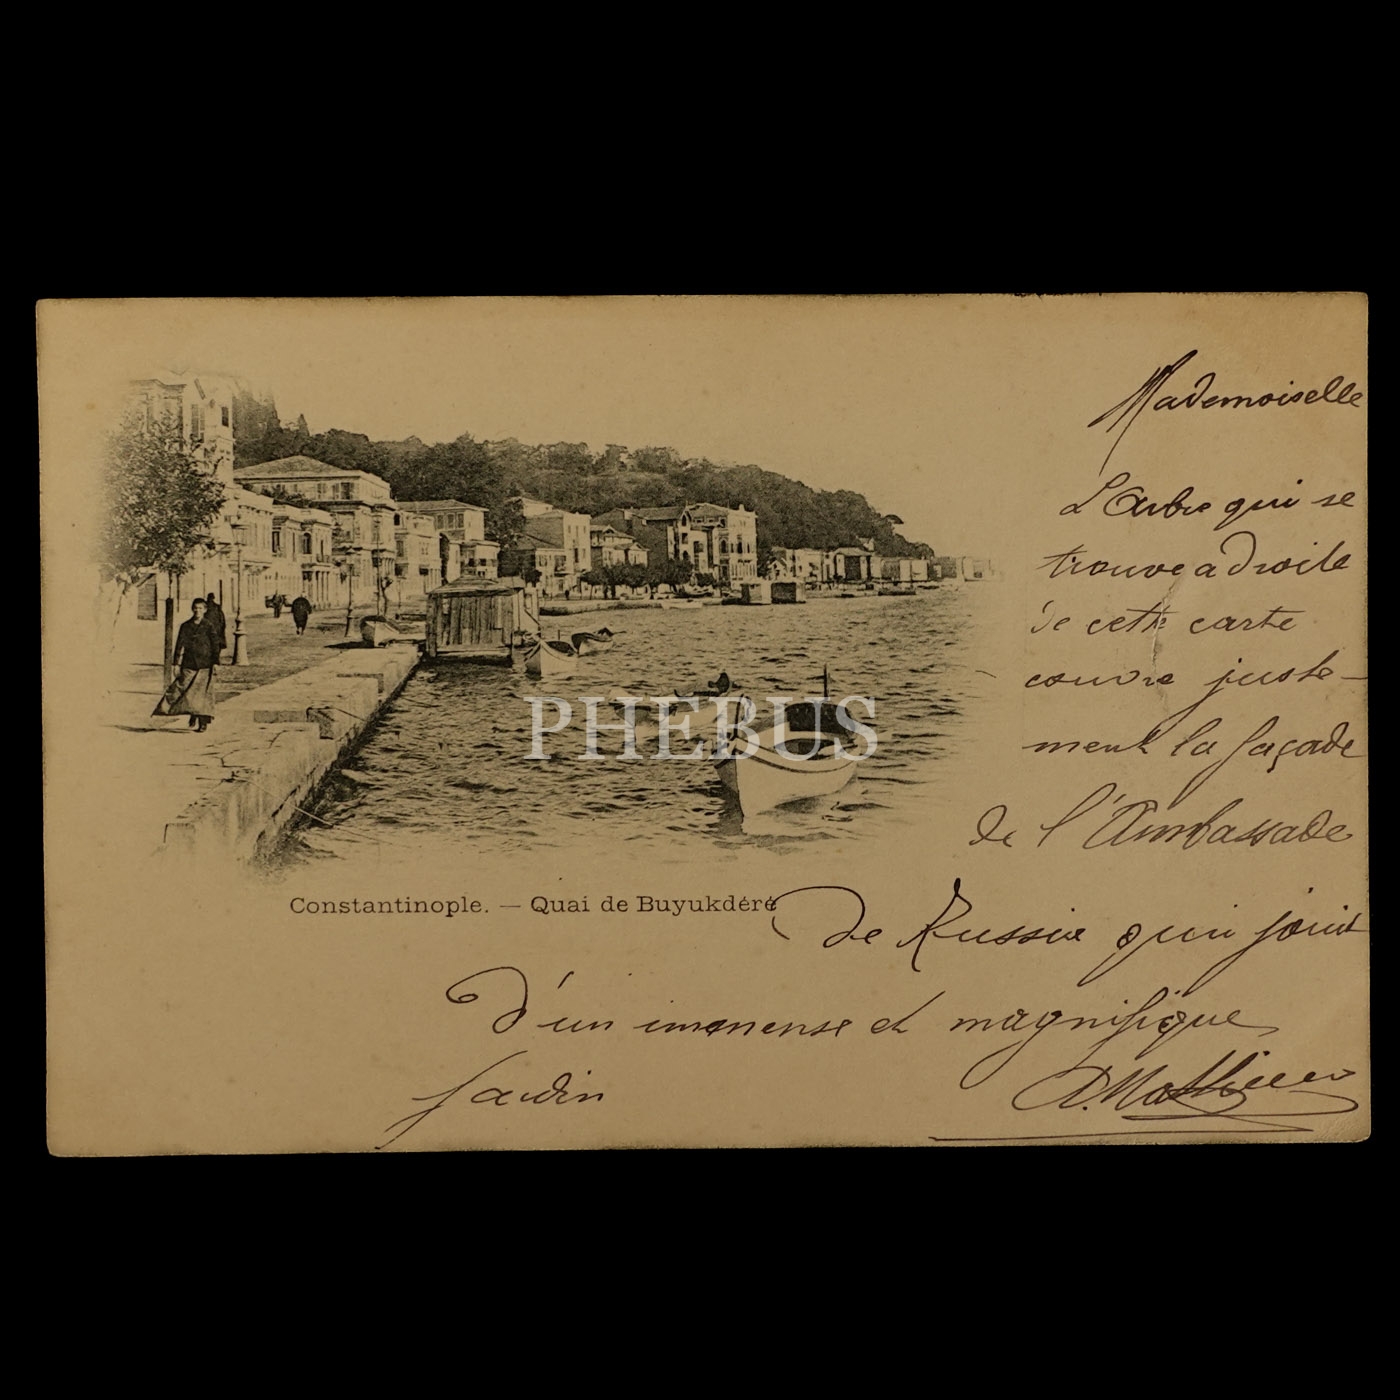 Mademoiselle
L'Arbre qui se
trouve a droite
de cette carte
couvre juste-
ment la façade
de l'Ambassade
de Russie qui jouit
d'un immense et magnifique
Jardin
A. Mathieu
PHEBUS
Constantinople. — Quai de Buyukdéré